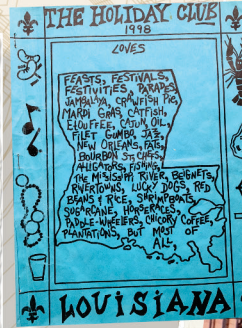 THE HOLIDAY CLUB
1998
LOVES
FEASTS, FESTIVALS,
FESTIVITIES, PARADES,
JAMBALAYA, CRAWFISH PIE,
MARDI GRAS, CATFISH,
ETOUFFEE, CAJUN, OIL,
FILET GUMBO, JAZZ,
NEW ORLEANS, FATS,
BOURBON ST, CHEFS,
ALLIGATORS, FISHING,
THE MISSISSIPPI RIVER, BEIGNETS,
RIVERTOWNS, LUCKY DOGS, RED
BEANS & RICE, SHRIMPBOATS,
SUGARCANE, HORSERACES,
PADDLE-WHEELERS, CHICORY COFFEE,
PLANTATIONS, BUT MOST OF
ALL,
LOUISIANA